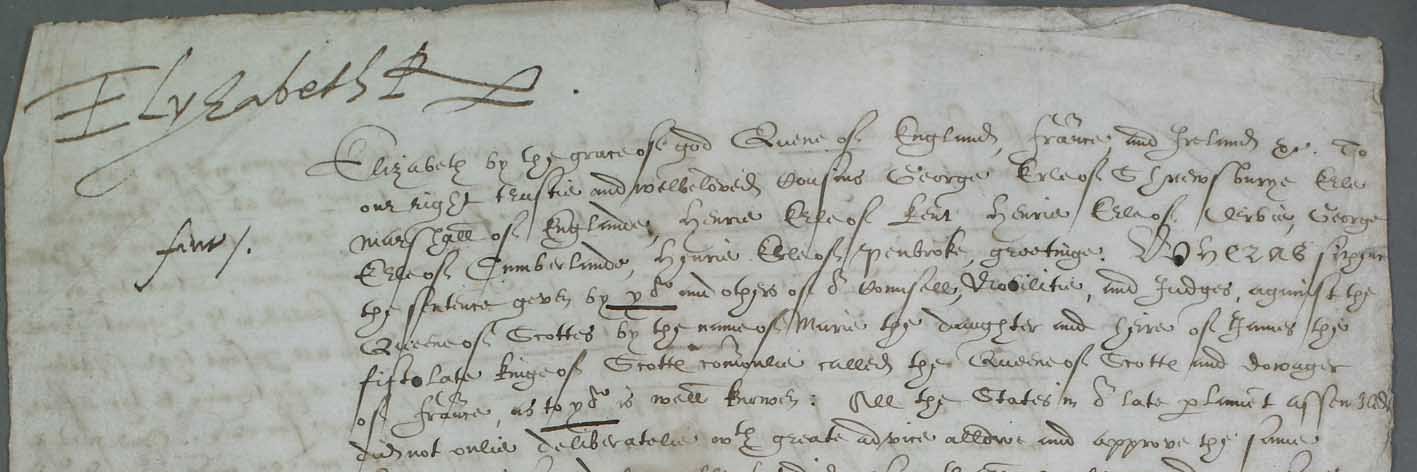 Elyzabeth R
Elizabeth by the grace of god Quene of England, fraunce, and Ireland &c. To
our right trustie and welbeloved Cousins George Erle of Shrewsburye Erle
marshall of Englande, Henrie Erle of Kent Henrie Erle of Derbie, George
Erle of Cumberlande, Henrie Erle of penbroke, greetinge. Wheras sithence
the sentence geven by yo and others of or Counsell, Nobilitie, and Judges, against the
Queene of Scottes by the name of Marie the daughter and heire of James the
fift late kinge of Scotts comonlie called the Queene of Scotts and dowager
of fraunce, as to yo is well knowen: All the States in or late parlament assembled
did not onlie deliberatelie wth greate advice allowe and approve the same